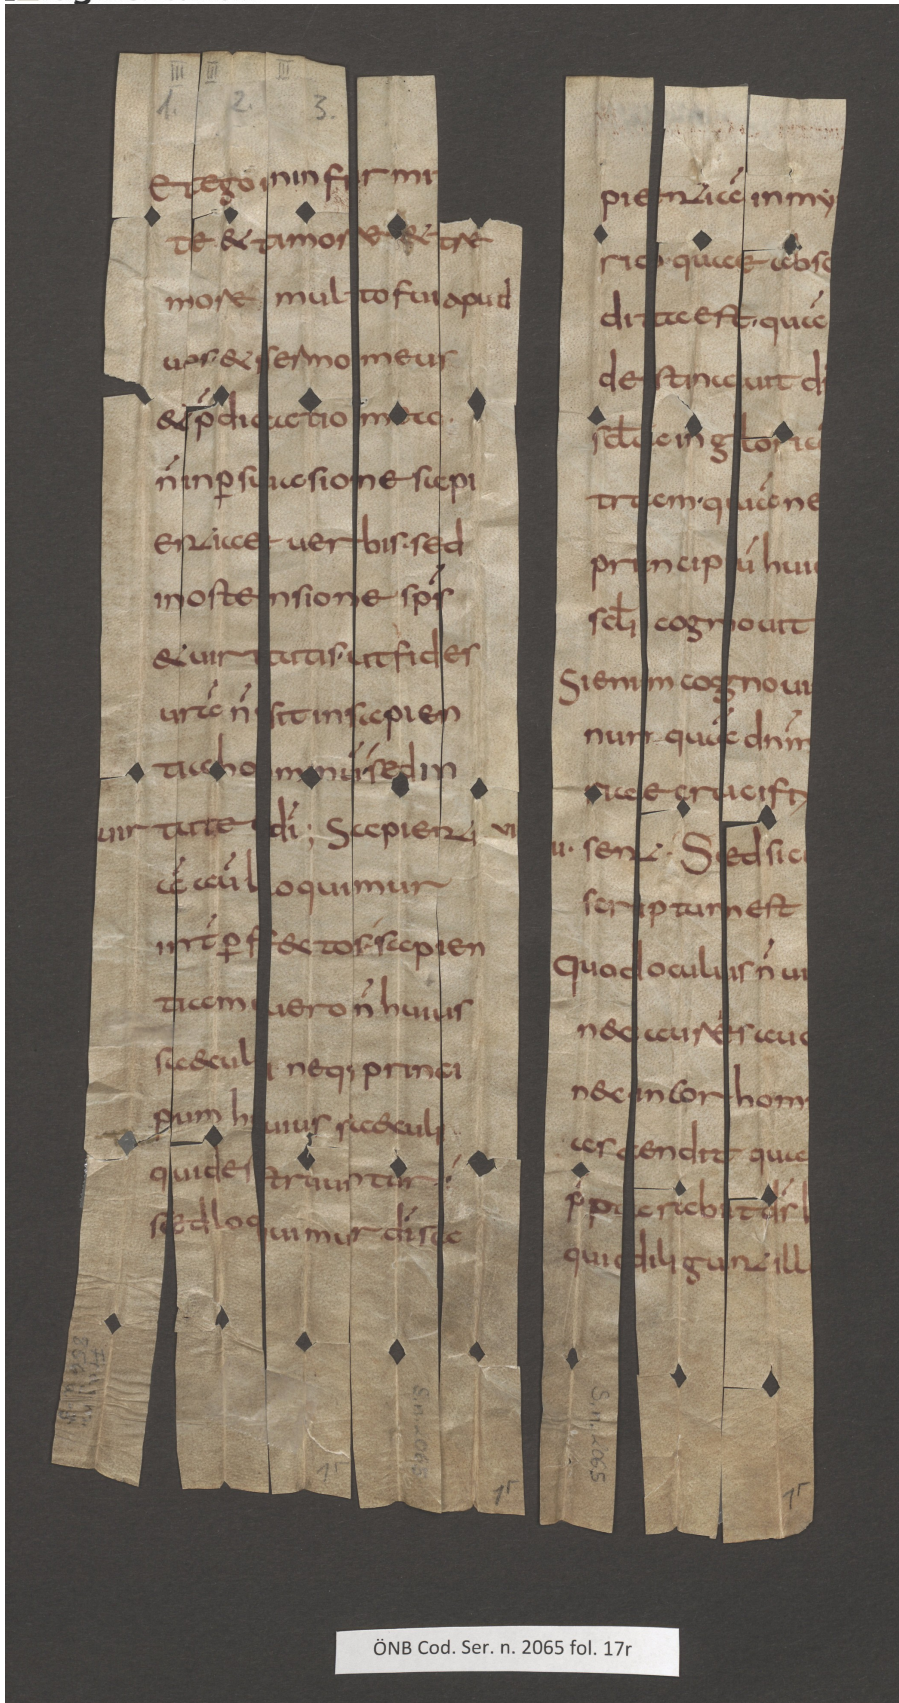 III III III
1. 2. 3.
Et ego in infirmi
te & timore & tre
more multo fui apud
uos & sermo meus
& p̄dicatio mea.
n̄ in ꝑsuasione sapi
entiae uerbis. sed
in ostensione sp̄s
& uirtutis. ut fides
urā n̄ sit in sapien
tia hominū. sed in
uirtute dī; Sapienti vi
ā aū loquimur
int̄ ꝑfectos. sapien
tiam uero n̄ huius
saeculi neq; princi
pum huius saeculi
qui destruuntur.
sed loquimur dī sa
pientiā in my
rio. quae absc
dita est. quā
destinauit dī
scl̄a in gloriā
tram. quā ne
principū huiu
scl̄i cognouit
Si enim cognoui
nunquā dn̄m
riae crucifix
u. sent. Sed sicu
scriptum est
Quod oculus n̄ ui
nec auris au
nec in cor homi
ascendit qua
p̄parabit dī
qui diligunt ill
S.n. 2065
1r
1r
S.n. 2065
1r
ÖNB Cod. Ser. n. 2065 fol. 17r